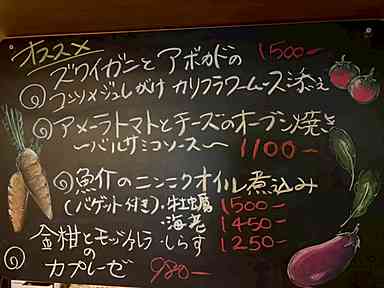 オススメ
ズワイガニとアボカドの 1500-
コンソメジュレがけ カリフラワームース添え
アメーラトマトとチーズのオーブン焼き
〜バルサミコソース〜 1100-
魚介のニンニクオイル煮込み
(バゲット付き)・牡蠣 1500-
・海老 1450-
・しらす 1250-
金柑とモッツァレラ
の
カプレーゼ 980-